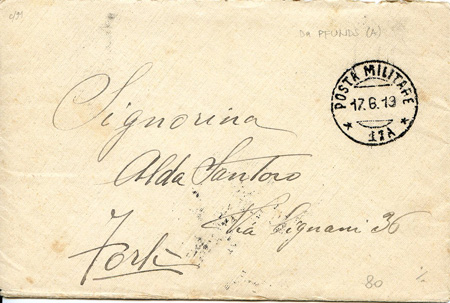 Da PFUNDS (A)
POSTA MILITARE
17.6.19
* 17A *
Signorina
Alda Santoro
Via Cignani 36
Forlì
80